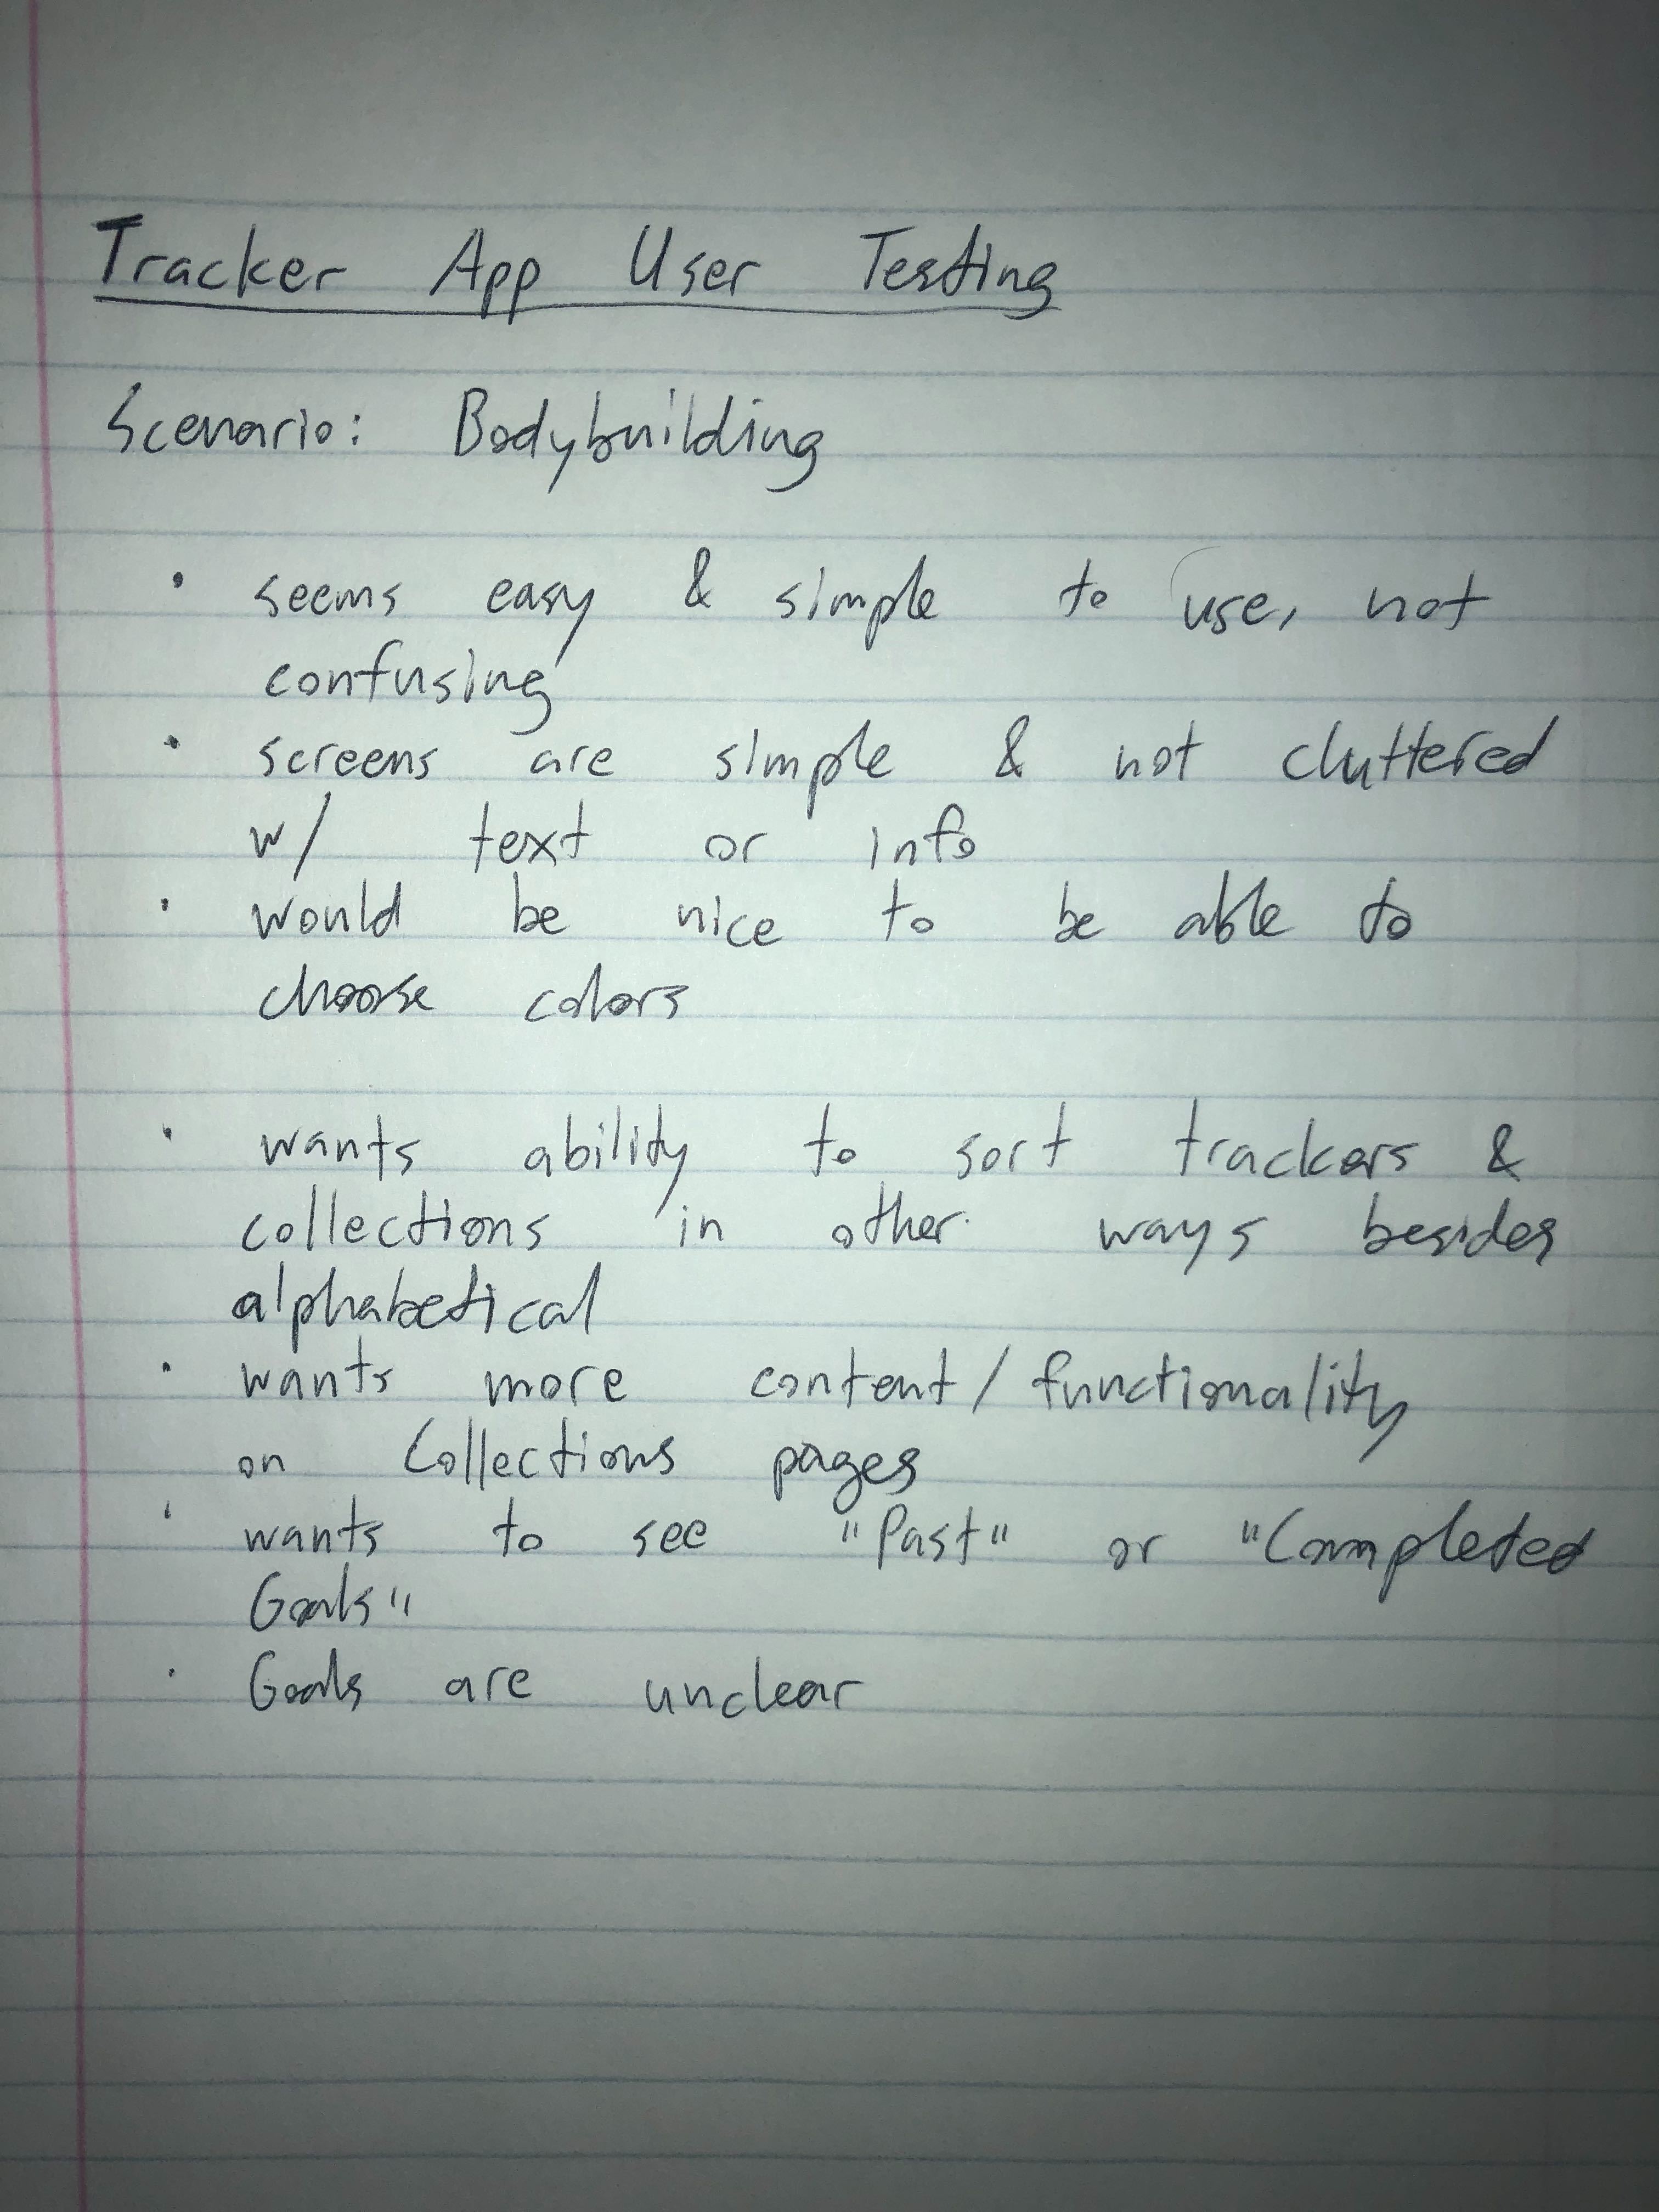 Tracker App User Testing
Scenario: Bodybuilding
• seems easy & simple to use, not
confusing
• screens are simple & not cluttered
w/ text or info
• would be nice to be able to
choose colors
• wants ability to sort trackers &
collections in other ways besides
alphabetical
• wants more content/functionality
on Collections pages
• wants to see "Past" or "Completed
Goals"
• Goals are unclear